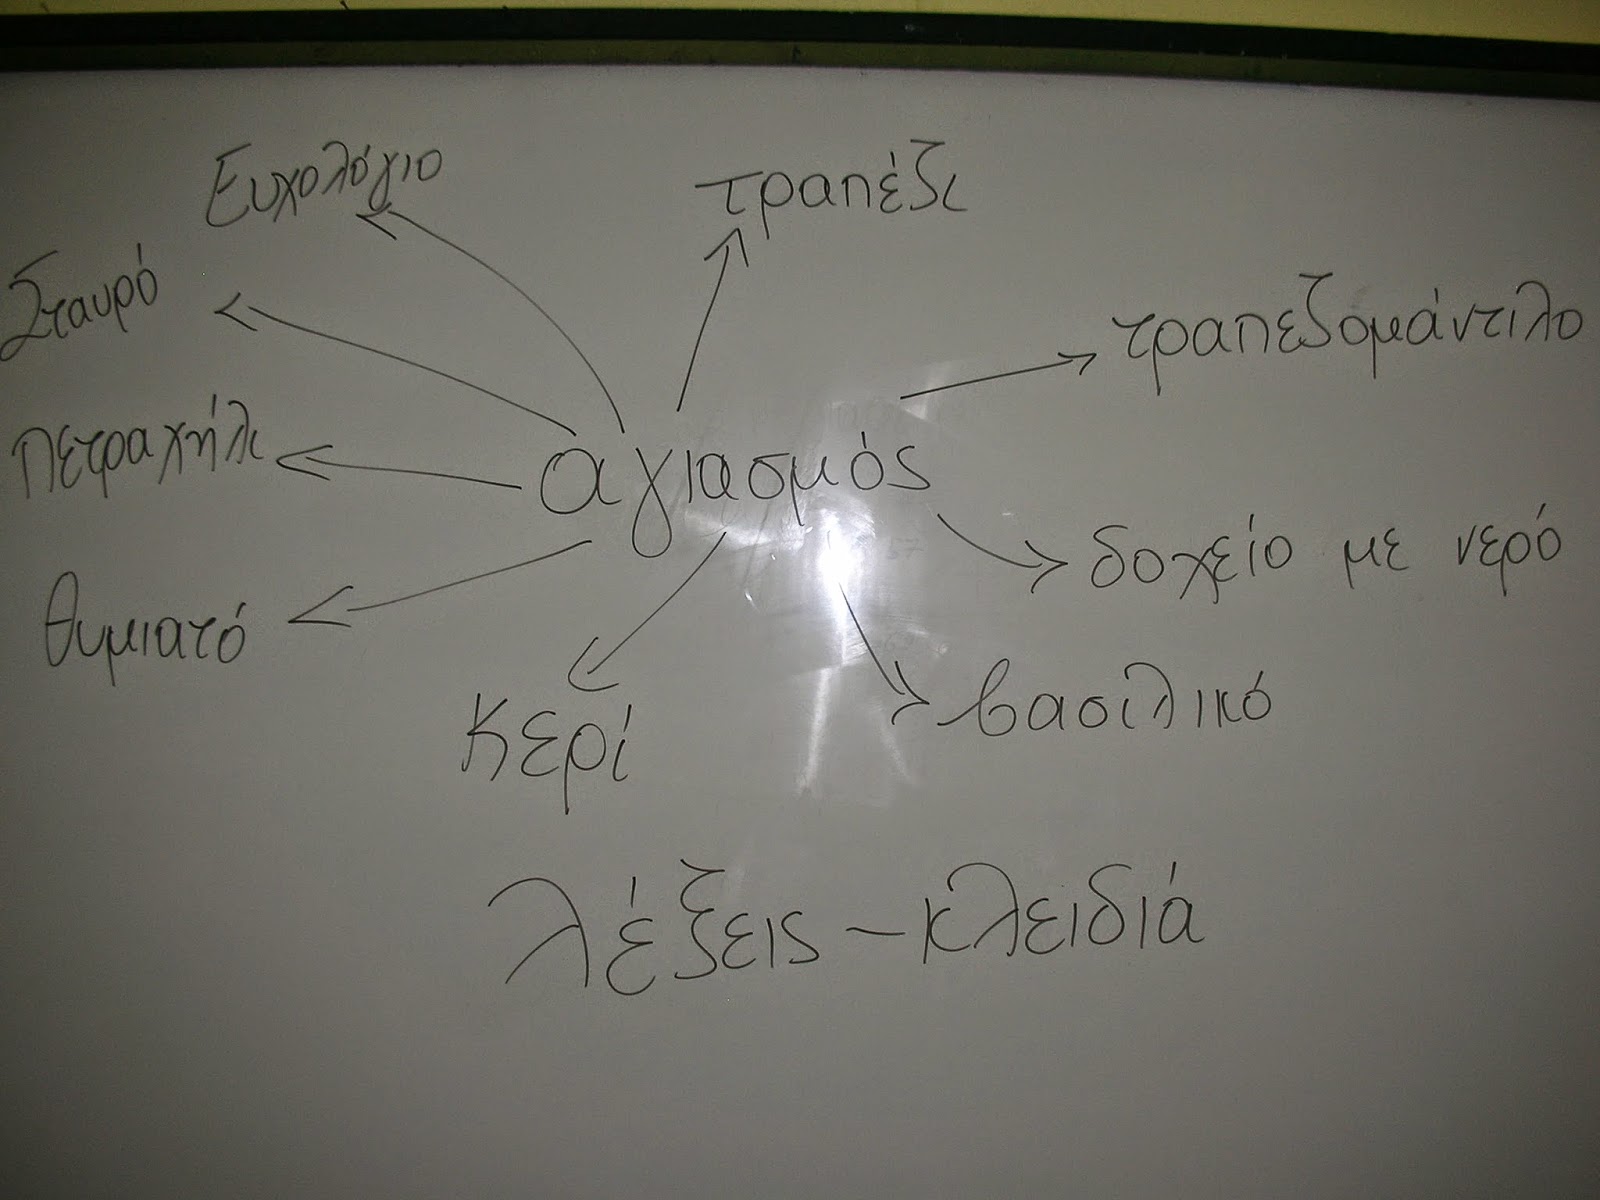 Ευχολόγιο
τραπέζι
Σταυρό
τραπεζομάντιλο
πετραχήλι
αγιασμός
δοχείο με νερό
θυμιατό
βασιλικό
κερί
λέξεις - κλειδιά